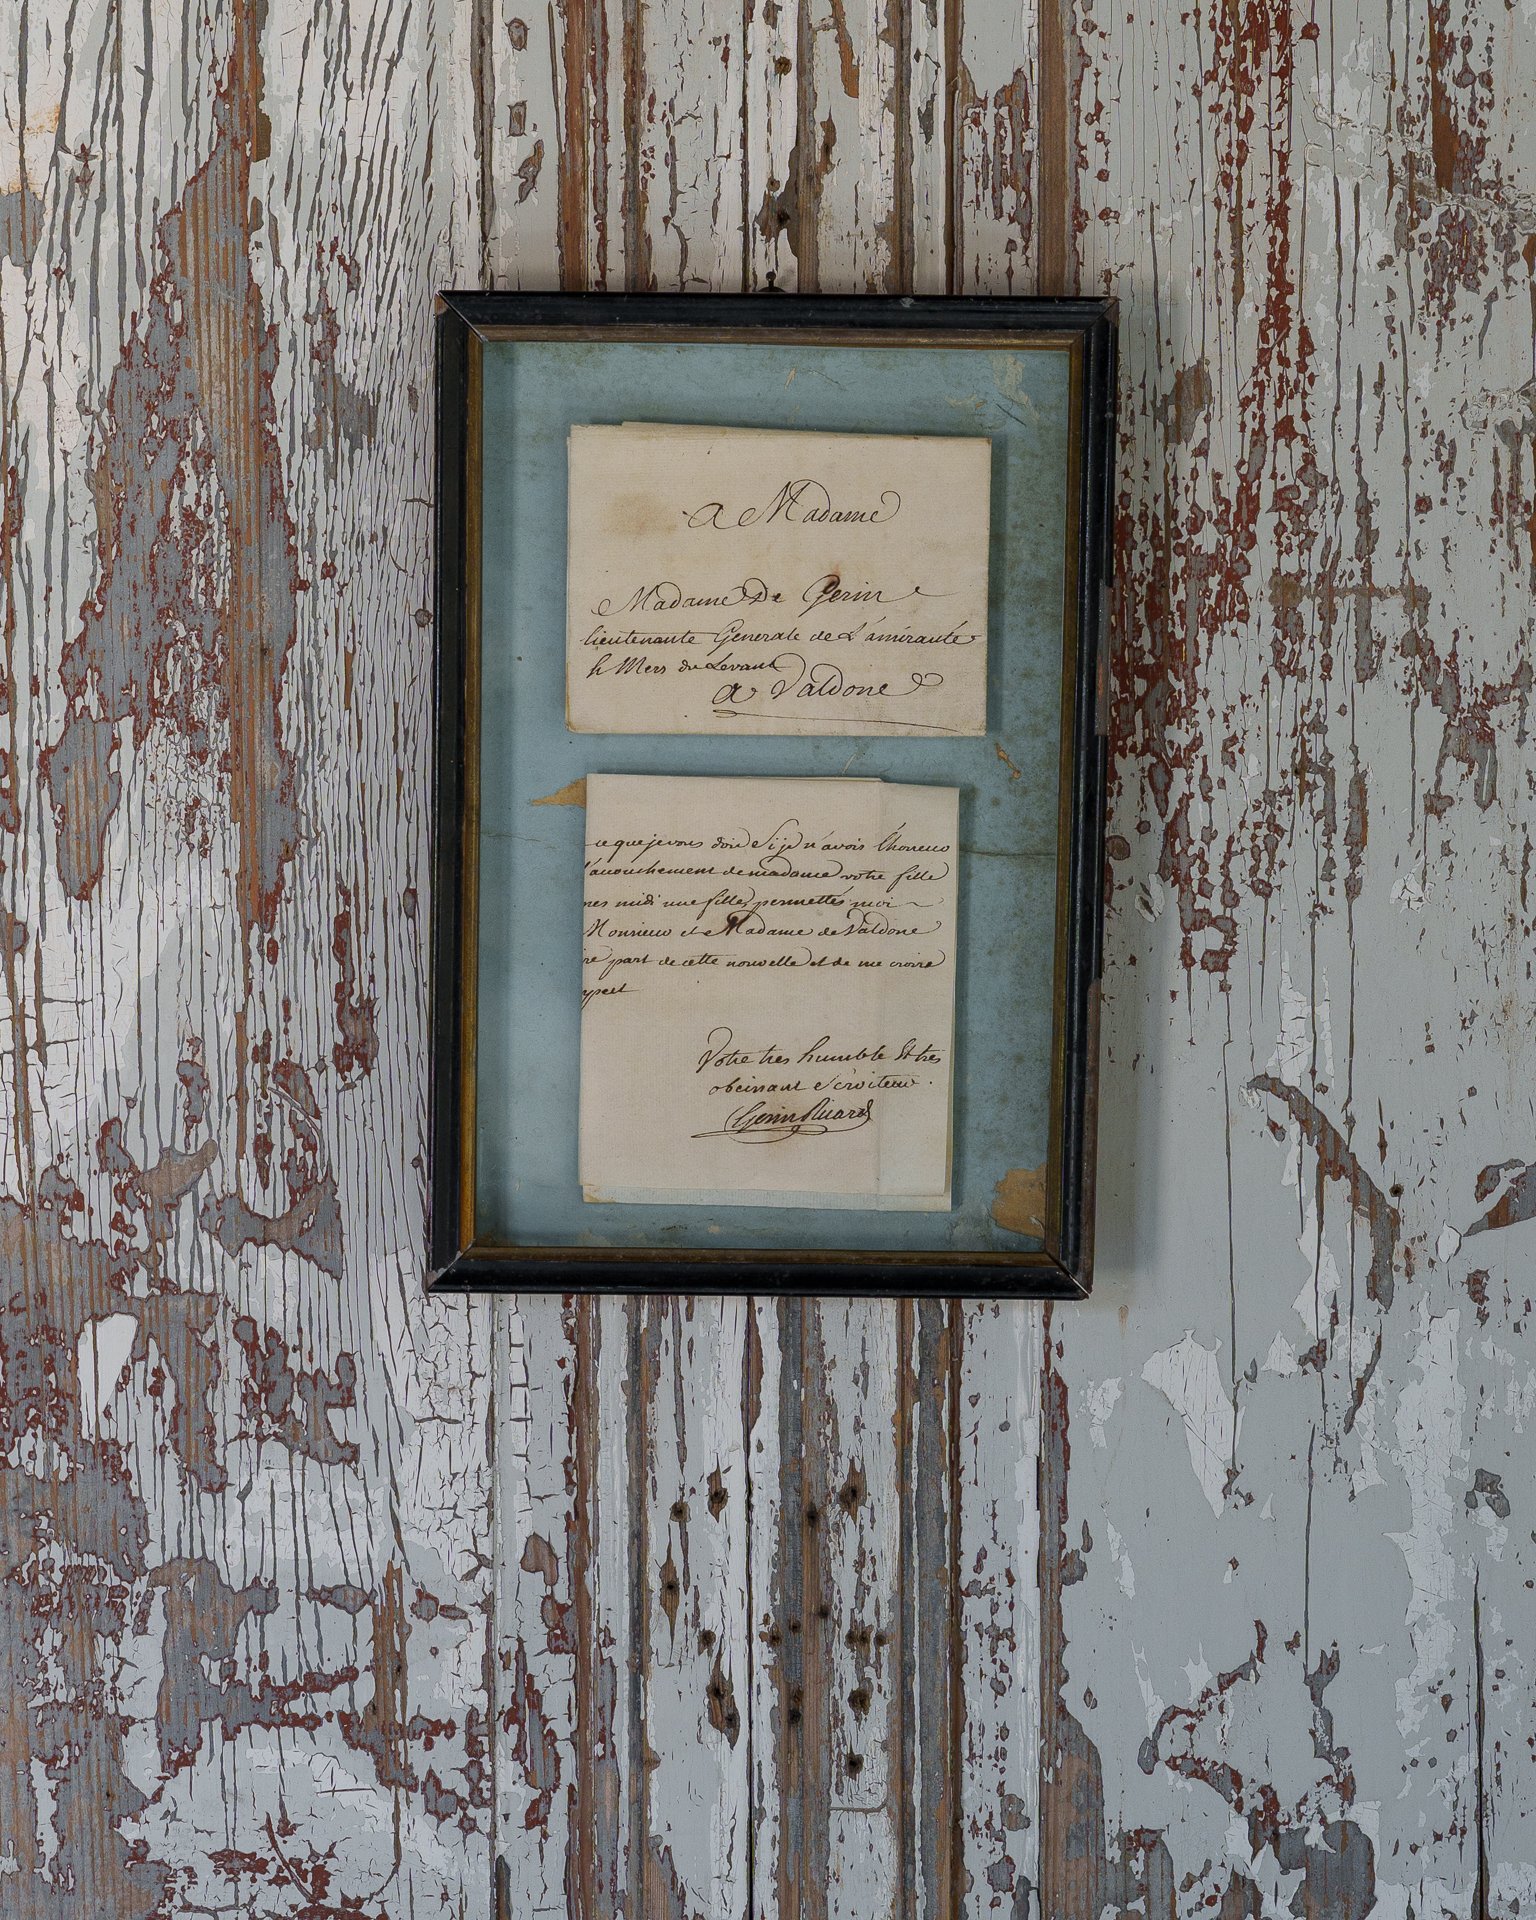 A Madame
Madame De Gerin
lieutenante Generale de L'amirauté
& Mers du Levant
a Valdone
ce que je vous dois Si je n'avois l'honeur
l'acouchement de madame votre fille
res midi une fille, permettés moi
Monsieur et Madame de Valdone
re part de cette nouvelle et de me croire
spect
Votre tres humble Et tres
obeissant Serviteur.
Gerin Ricard